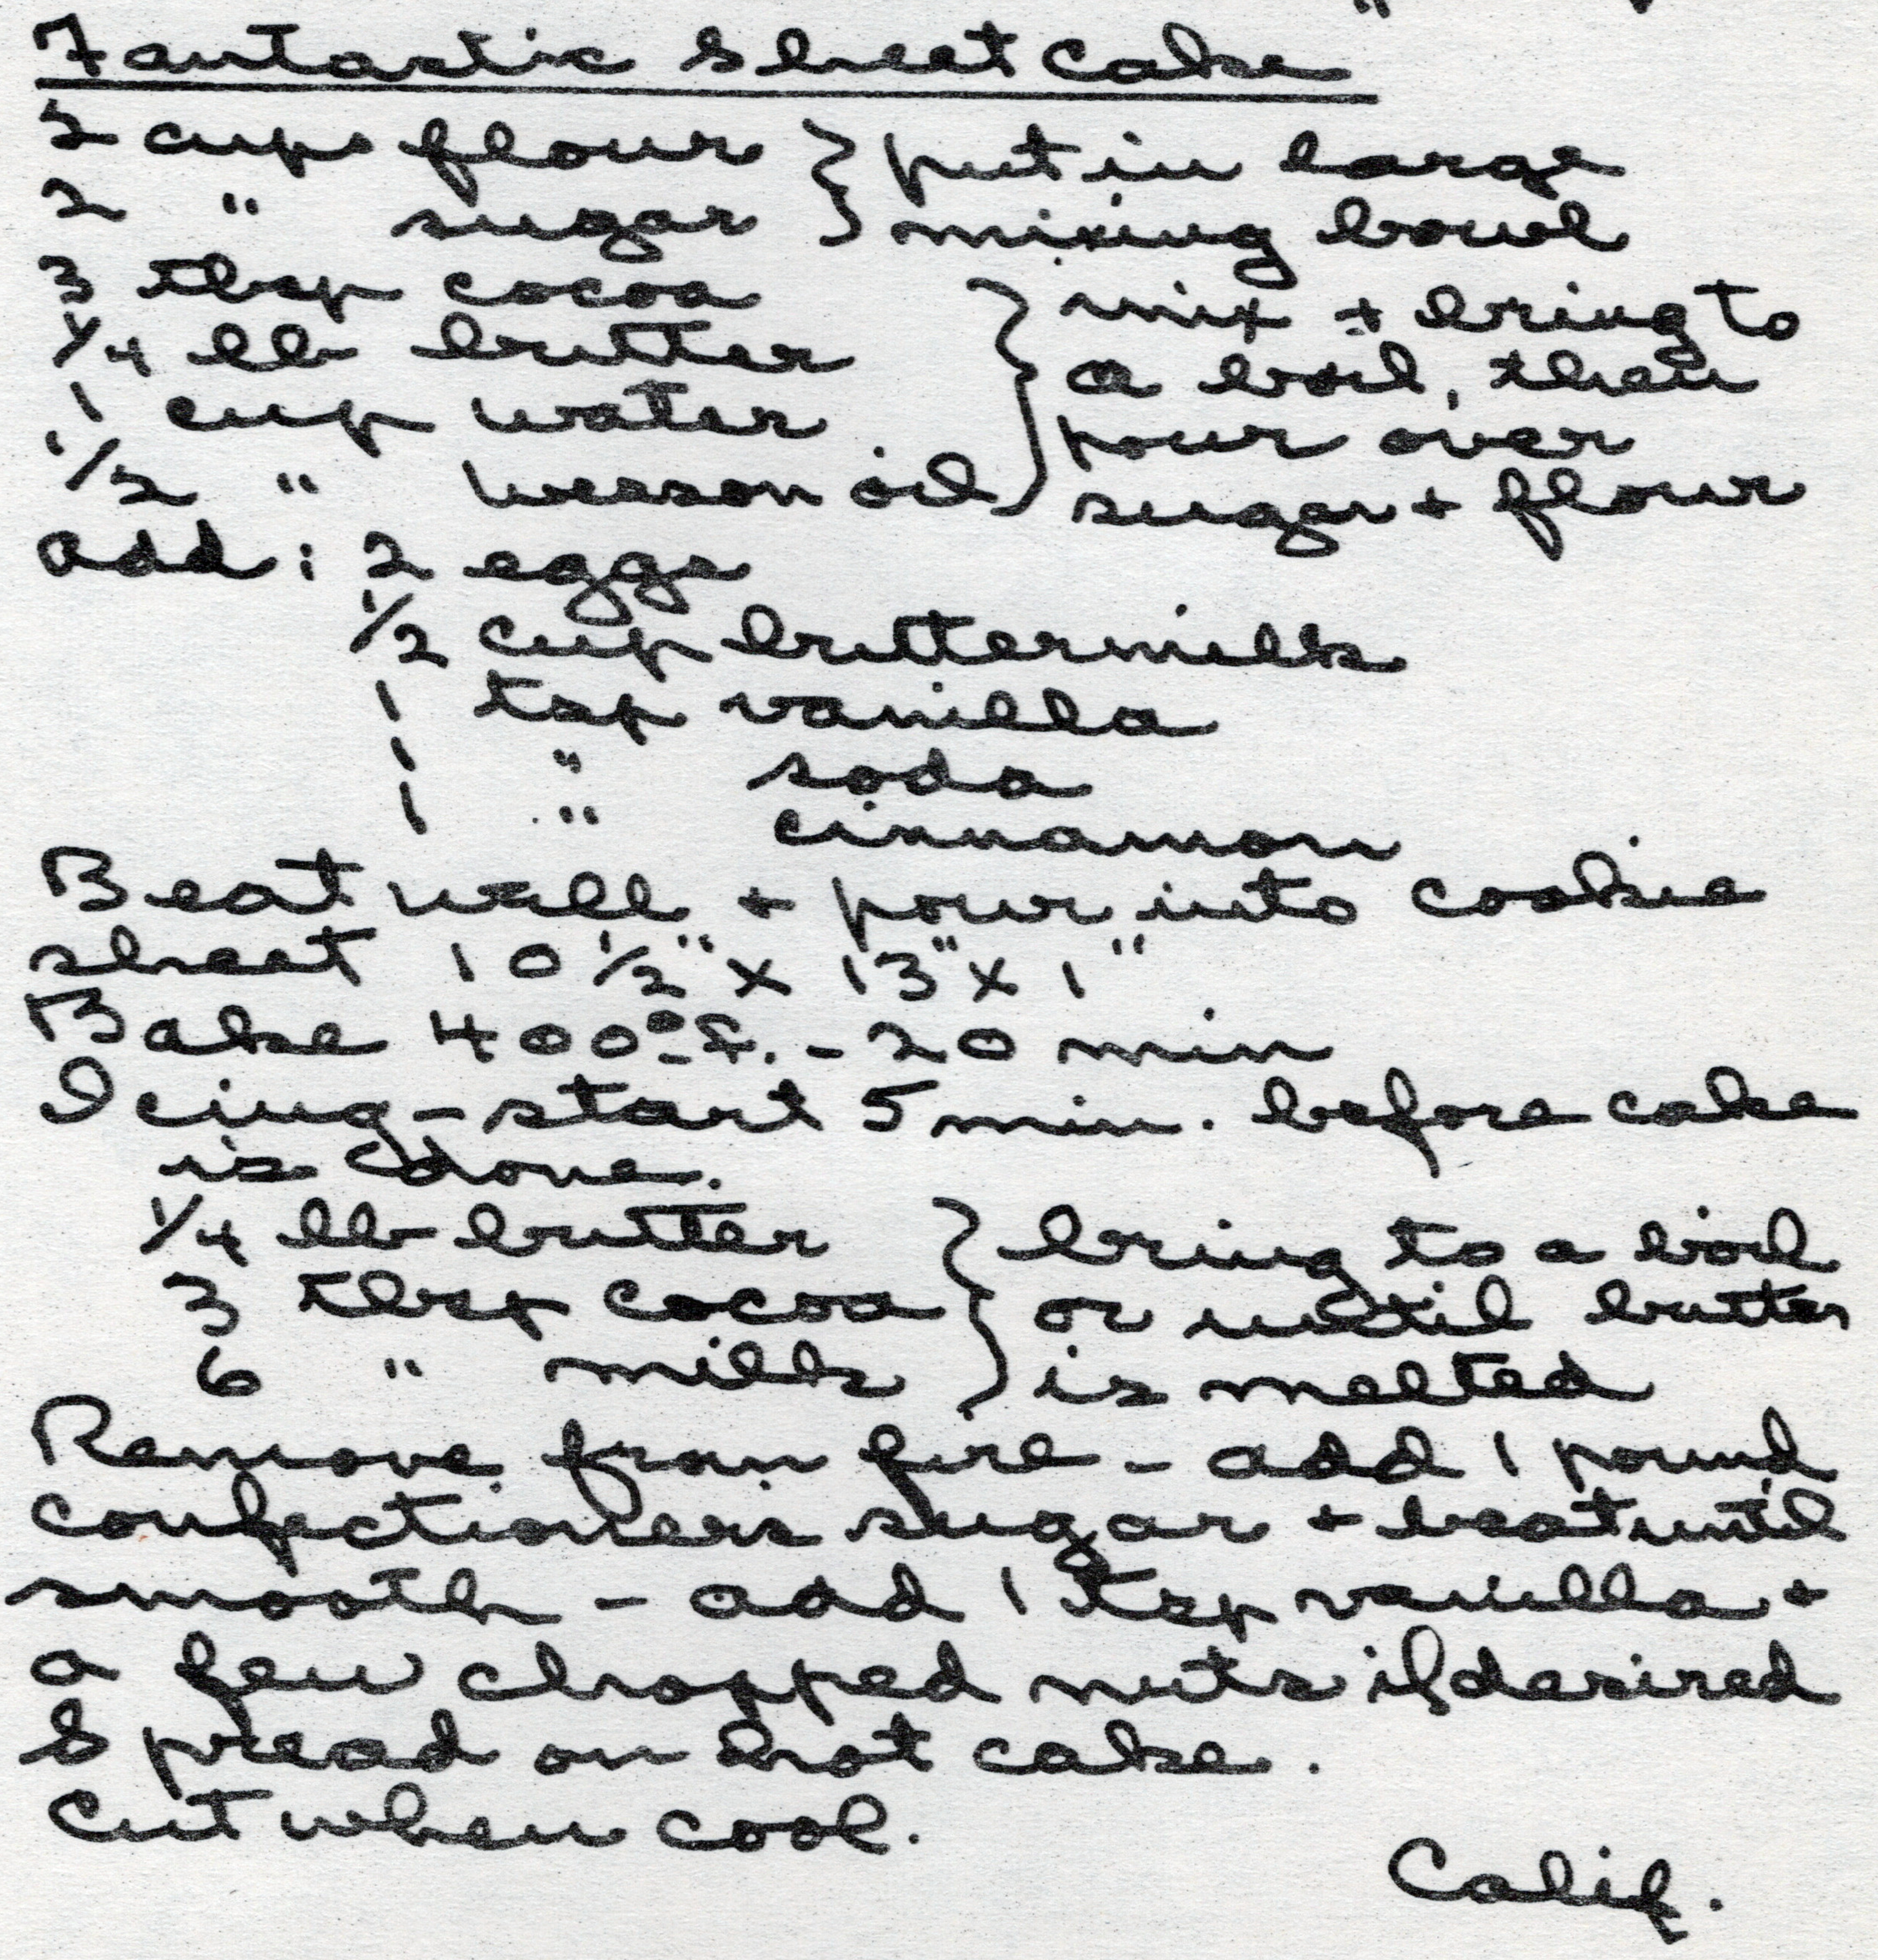 Fantastic Sheet Cake
2 cups flour } put in large
2 " sugar } mixing bowl
3 tbsp cocoa } mix + bring to
1/4 lb butter a boil, then
1 cup water pour over
1/2 " Wesson oil sugar + flour
add: 2 eggs
1/2 cup buttermilk
1 tsp vanilla
1 " soda
1 " cinnamon
Beat well + pour into cookie
sheet 10 1/2" x 13" x 1"
Bake 400° F. - 20 min
Icing - start 5 min. before cake
is done.
1/4 lb butter } bring to a boil
3 tbsp cocoa or until butter
6 " milk is melted
Remove from fire - add 1 pound
confectioners sugar + beat until
smooth - add 1 tsp vanilla +
a few chopped nuts if desired
Spread on hot cake.
Cut when cool.
Calif.